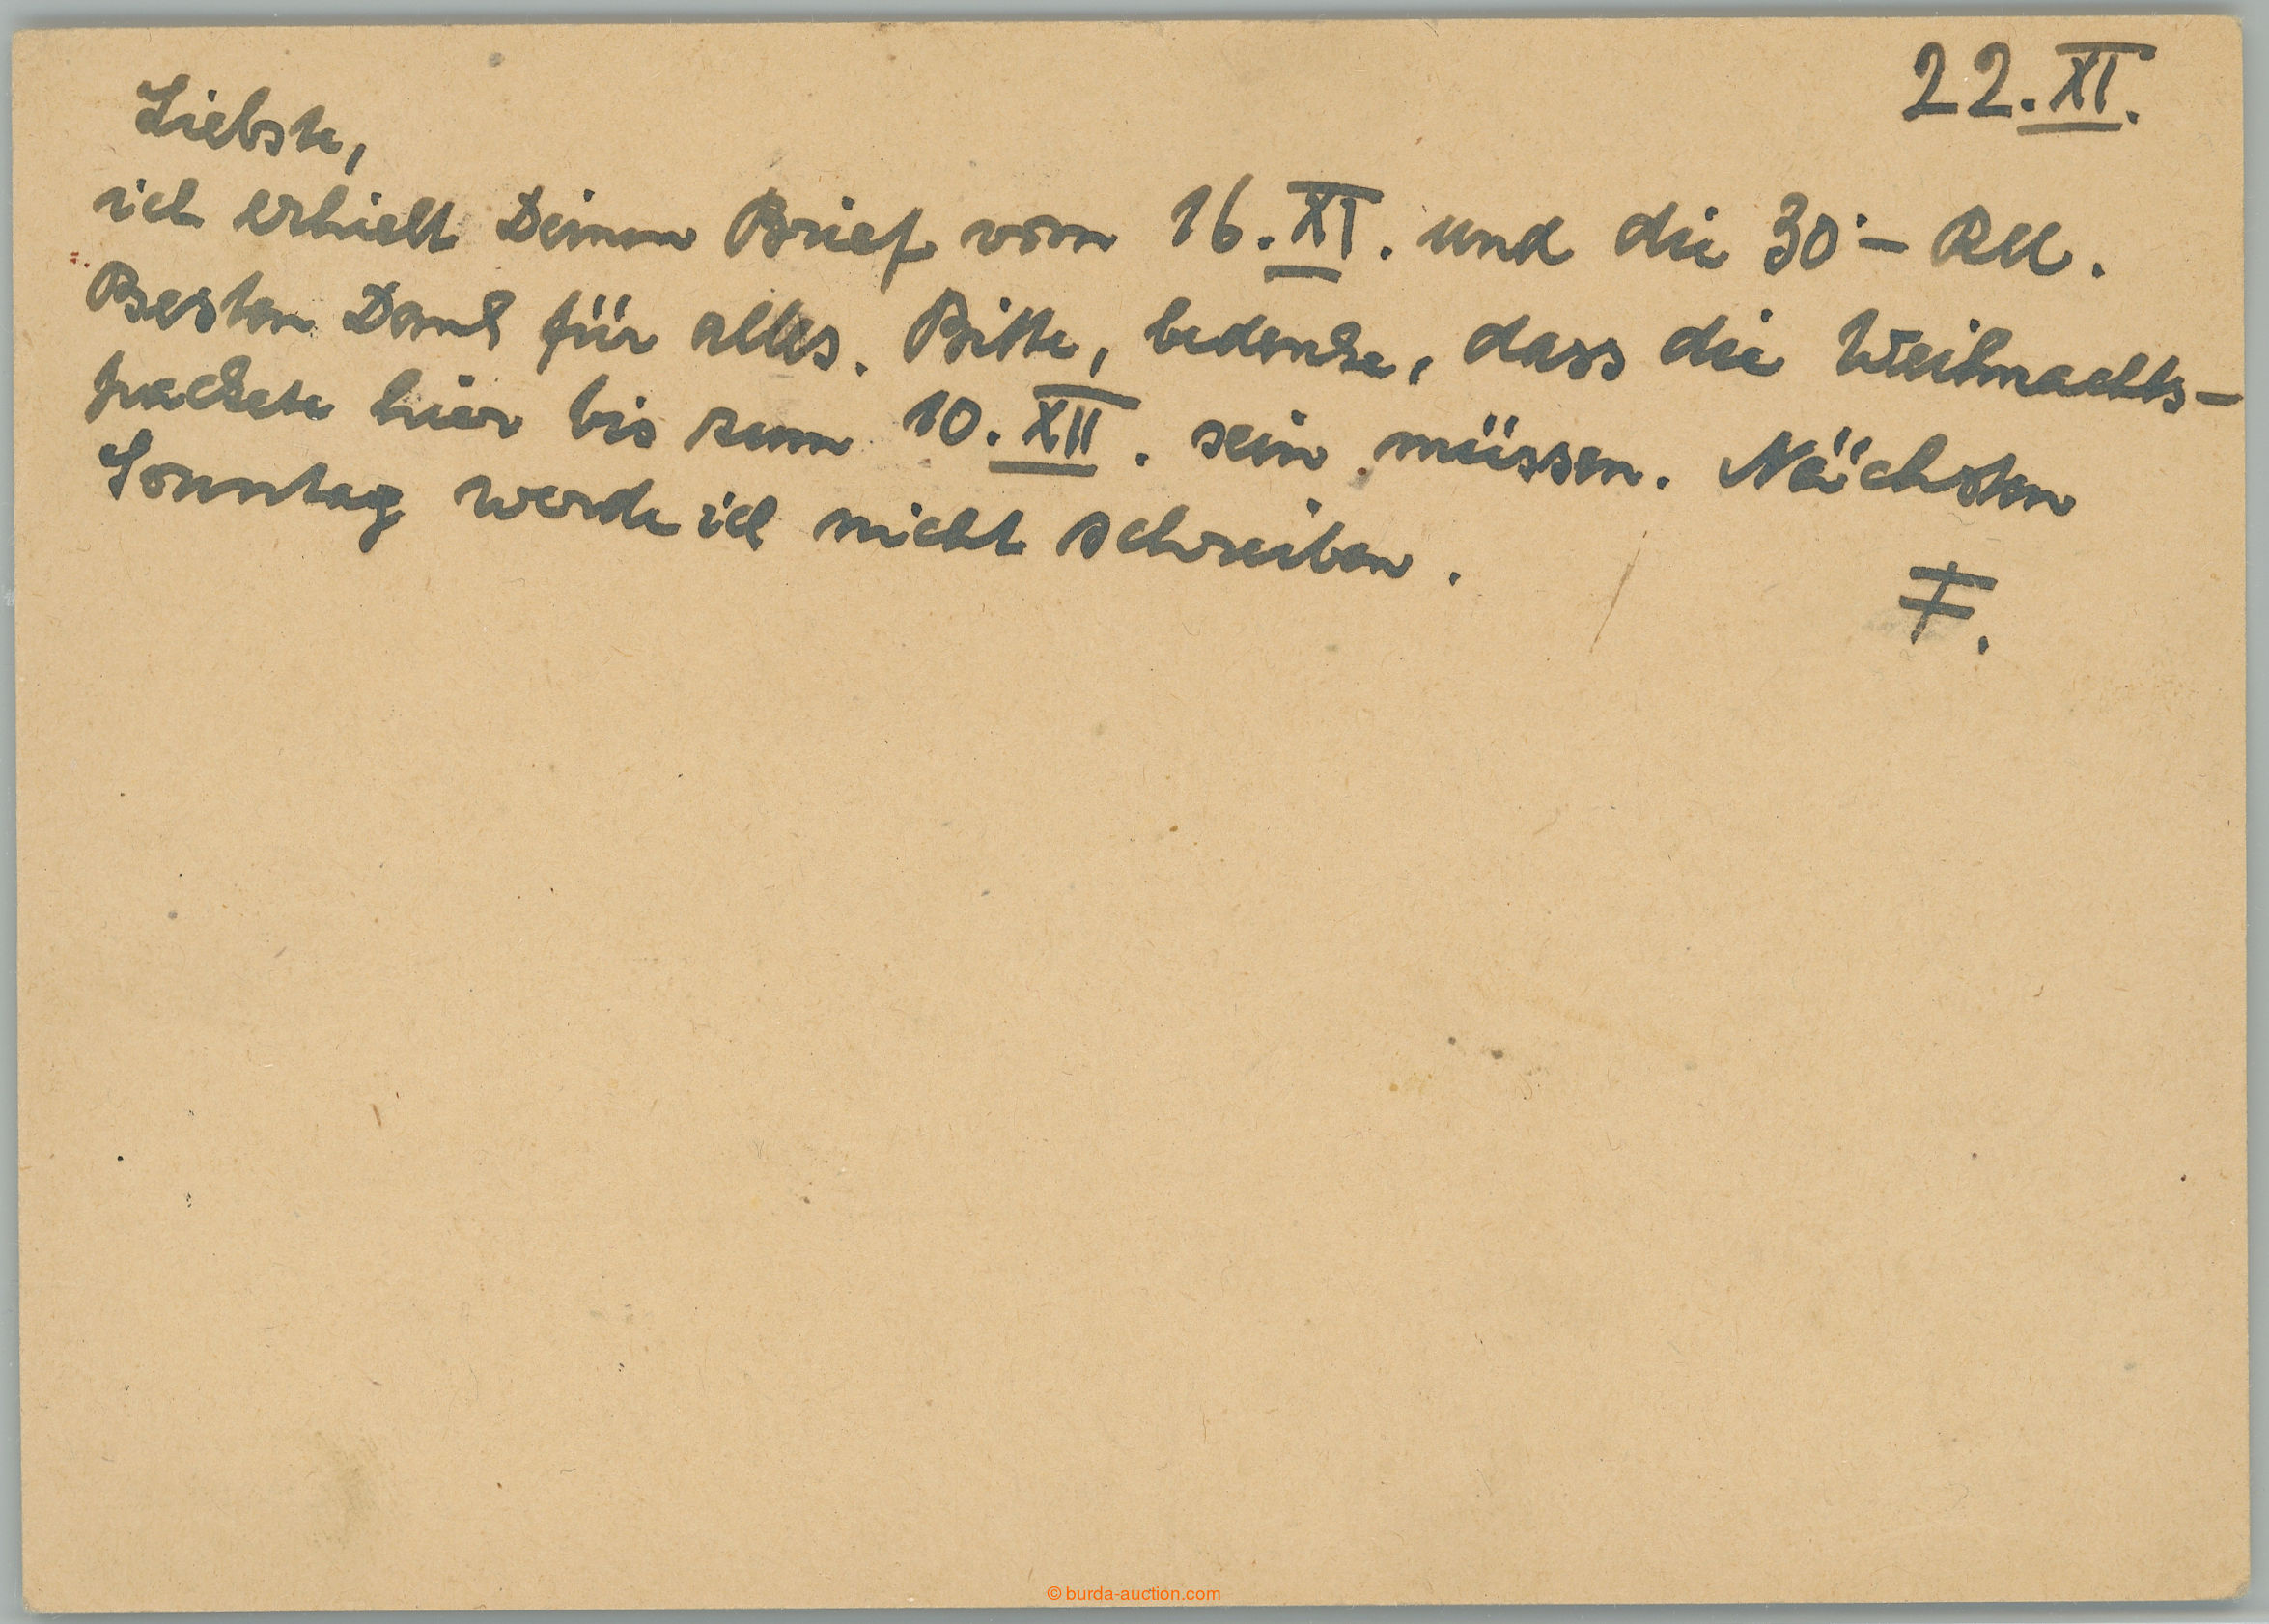 22.XI.
Liebste,
ich erhielt Deinen Brief vom 16.XI. und die 30·– RM.
Besten Dank für alles. Bitte, bedenke, dass die Weihnachts-
packete hier bis zum 10.XII. sein müssen. Nächsten
Sonntag werde ich nicht schreiben.
F.
© burda-auction.com